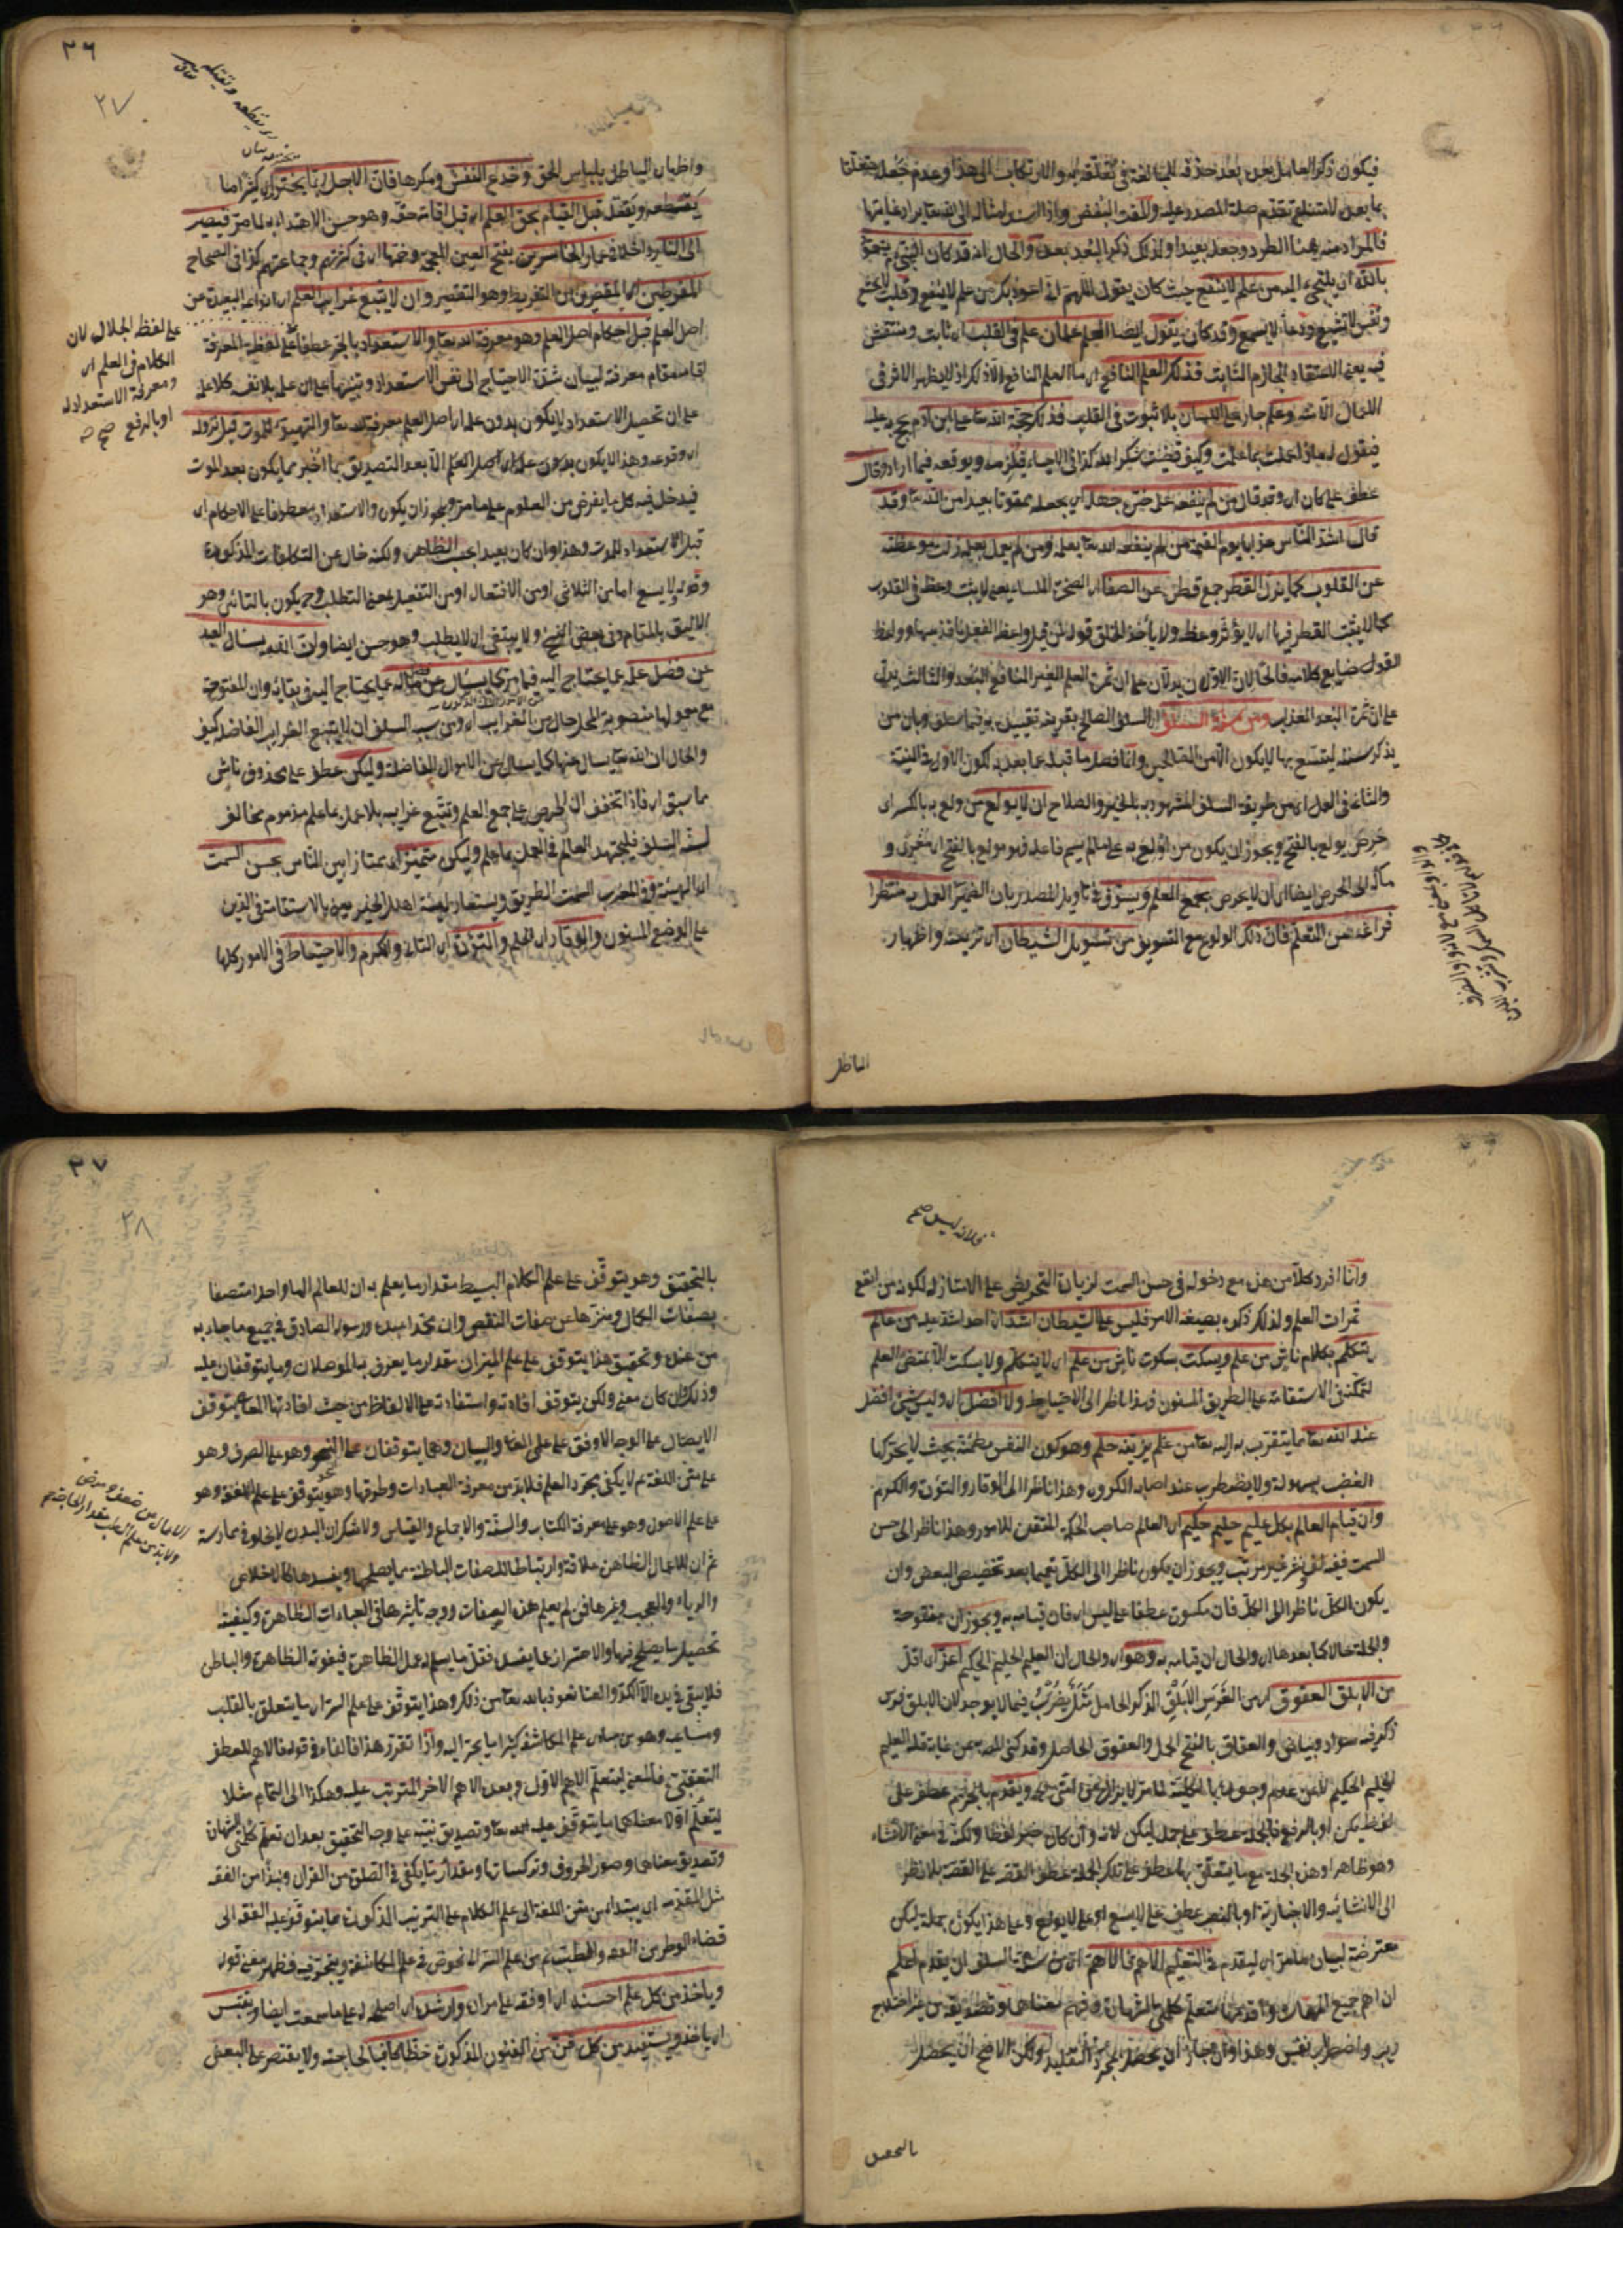 فيكون ذكر العامل بعد حذفه للمبالغة في تعلقه به والارتكاب الى هذا وعدم جعله متعلقا
بما بعد لامتناع تقدم صلة المصدر عليه والمقت البغض واذا اسند امثاله الى الله تعا يراد غايتها
فالمراد منه هنا الطرد وجعله بعيدا ولذلك ذكر البعد بعده والحال انه قد كان النبي يتعوذ
بالله اي يلتجئ اليه من علم لا ينفع حيث كان يقول اللهم اني اعوذ بك من علم لا ينفع وقلب لا يخشع
ونفس لا تشبع ودعاء لا يسمع وقد كان يقول ايضا العلم علمان علم في القلب اي ثابت ومنتقش
فيه يعني الاعتقاد الجازم الثابت فذلك العلم النافع اي ما العلم النافع الا ذلك اذ لا يظهر الاثر في
اللسان الا به وعلم جار على اللسان بلا ثبوت في القلب فذلك حجة الله تعا على ابن ادم يحج عليه
فيقول له ماذا عملت بما علمت وكيف قضيت شكر الله كذا في الاحياء فيلزمه ويوقعه فيما اراد وقال
عطف على كان اي وقد قال من لم ينفعه علمه ضره جهله اي يجعله ممقوتا بعيدا من الله تعا وقد
قال اشد الناس عذابا يوم القيمة من لم ينفعه الله تعا بعلمه ومن لم يعمل بعلمه زلت موعظته
عن القلوب كما يزل القطر جمع قطرة عن الصفا اي الصخرة الملساء يعني لا يثبت وعظه في القلوب
كما لا يثبت القطر فيها اي لا يؤثر وعظه ولا يأخذ الخلق قوله
القول ضايع كلامه فالحاصل ان الاولان يدلان على ان ثمرة العلم الغير النافع البعد والثالث يدل
على ان ثمرة البعد العذاب ومن سنة السلف اي السلف الصالح بقرينة
يذكر سننه ليتسنن بها لا يكون الا من الصالحين وانما فصل ما قبله عما بعده لكون الاول في النية
والثاني في العمل اي من طريقة السلف المشهود به بالخير والصلاح ان لا يولع من ولع به بالكسر اي
حرص يولع بالفتح ويجوز ان يكون من اولع به على ما لم يسم فاعله فهو مولع بالفتح اي مغرى و
مآله الى الحرص ايضا اي ان لا يحرص بجمع العلم ويسوف في تأويل المصدر بان المضمرة العمل به منتظرا
فراغه من التعلم فان ذلك الولوع مع التسويف من تسويل الشيطان اي تزيينه واظهار
الباطل
٣٦
٣٧
واظهار الباطل بلباس الحق وخدع النفس ومكرها فان الاجل ربما يخترم اي كثيرا ما
يقتطعه ويقتله قبل القيام بحق العلم اي قبل اقامة حقه وهو حسن الاهتداء به لما مر فيصير
الى النار داخلا في غمار الخاسرين بفتح الغين المعجمة وضمها اي في كثرتهم وجماعتهم كذا في الصحاح
المفرطين اي المقصرين من التفريط وهو التقصير وان لا يتبع غرايب العلم اي انواعه البعيدة من
اصل العلم قبل احكام اصل العلم وهو معرفة الله تعا والاستعداد بالجر عطفا على لفظة المعرفة
اقامه مقام معرفته لبيان شدة الاحتياج الى نفس الاستعداد وتنبيها على ان علمه بلا نفسه كلا علم
على ان تحصيل الاستعداد لا يكون بدون علمه اي اصل العلم معرفة الله تعا والتهيؤ للموت قبل نزوله
اي وقوعه وهذا لا يكون بدون علمه اي اصل العلم الا بعد التصديق بما اخبر مما يكون بعد الموت
فيدخل فيه كل ما يفرض من العلوم على ما مر ويجوز ان يكون والاستعداد معطوفا على الاحكام اي
قبل الاستعداد للموت وهذا وان كان بعيدا بحسب الظاهر ولكنه خال عن التكلفات المذكورة
وقوله لا يسع اما من الثلاثي او من الافتعال او من التفعيل بمعنى التطلب وح يكون بالتائين وهو
الاليق بالمقام وفي بعض النسخ ولا يبتغي اي لا يطلب وهو حسن ايضا ولان الله يسأل العبد
عن فضل علمه عما يحتاج اليه فيما مر كما يسأل عن فضل ماله عما يحتاج اليه في بقائه وان المفتوحة
مع معمولها منصوبة المحل حال من الغرايب اي ومن سيرة السلف ان لا يتتبع الغرايب الفاضلة كيف
والحال ان الله تعا يسأل عنها كما يسأل عن الاموال الفاضلة وليكن عطف على محذوف ناش
مما سبق اي فاذا تحقق ان الحرص على جمع العلم وتتبع غرايبه بلا عمل بما علم مذموم مخالف
لسنة السلف فليجتهد العالم في العمل بما علم وليكن متميزا اي ممتازا بين الناس بحسن السمت
اي الهيئة وفي المغرب السمت الطريق ويستعار لهيئة اهل الخير يعني بالاستقامة في الدين
على الوضع المسنون والوقار اي الحلم والتؤدة اي التأني والكرم والاحتياط في الامور كلها
على لفظ الجلال لان
الكلام في العلم اي
ومعرفة الاستعداد له
او بالرفع صح
فلانه ليس صح
وانما افرد كلا من هذه مع دخوله في حسن السمت لزيادة التحريض على الامتياز به لكونه من انفع
ثمرات العلم ولذلك ذكره بصيغة الامر فليس على الشيطان اشد اي احد اشد عليه من عالم
يتكلم بكلام ناش من علم ويسكت بسكوت ناش من علم اي لا يتكلم ولا يسكت الا بمقتضى العلم
لتمكنه في الاستقامة على الطريق المسنون وهذا ناظر الى الاحتياط ولا افضل اي وليس شئ افضل
عند الله تعا مما يتقرب به اليه تعا من علم يزينه حلم وهو كون النفس مطمئنة بحيث لا يحركها
الغضب بسهولة ولا يضطرب عند اصابة المكروه وهذا ناظر الى الوقار والتؤدة والكرم
وان قيام العالم بكل عليم حليم حكيم اي العالم صاحب الحكمة المتقن للامور وهذا ناظر الى حسن
السمت ففيه لف ونشر غير مرتب ويجوز ان يكون ناظرا الى الكل تعميما بعد تخصيص البعض وان
يكون الكل ناظرا الى الكل فان مكسورة عطفا على ليس اي فان قيامه به ويجوز ان مفتوحة
والجملة حالا كما بعدها اي والحال ان قيامه به وهو اي والحال ان العليم الحليم الحكيم اعز اي اقل
من الابلق العقوق اي من الفرس الابلق الذكر الحامل مثل يضرب فيما لا يوجد لان الابلق فرس
ذكر فيه سواد وبياض والعقاق بالفتح الحمل والعقوق الحامل وقد كنى المص به عن غاية قلة العليم
الحليم الحكيم لا عن عدم وجوده بالكلية
لفظ يكن او بالرفع فالجملة عطف على جملة ليكن لانه وان كان خبرا لفظا ولكنه في معنى الانشاء
وهو ظاهر او هذه الجملة مع ما يتعلق بها عطف على تلك الجملة عطف القصة على القصة بلا نظر
الى الانشائية والاخبارية او بالنصب عطف على لا يتبع او على لا يولع وعلى هذا يكون جملة ليكن
معترضة لبيان ما مر اي ليقدم في التعلم الاهم فالاهم اي من سنة السلف ان يقدم اهم
ان اهم جميع المهمات واقدمها تعلم كلمتي الشهادة وفهم معناهما وتصديقه من غير اختلاج
ريب واضطراب نفس وهذا وان جاز ان يحصل بمجرد التقليد ولكن الاصح ان يحصل
بالتحقيق
٣٧
٣٨
بالتحقيق وهو يتوقف على علم الكلام البسيط مقدار ما يعلم به ان للعالم الها واحدا متصفا
بصفات الكمال ومنزها عن صفات النقص وان محمدا عبده ورسوله الصادق في جميع ما جاء به
من عنده وتحقيق هذا يتوقف على علم الميزان مقدار ما يعرف به الموصلان وما يتوقفان عليه
وذلك وان كان معنى ولكن يتوقف افادته واستفادته على الالفاظ من حيث افادتها المعا فيتوقف
الايصال على الوجه الاوفق على علمي المعا والبيان وهما يتوقفان على النحو وهو على الصرف وهو
على متن اللغة ثم لا يكفي مجرد العلم فلا بد من معرفة العبادات وطرقها وهو يتوقف على علم الفقه وهو
على علم الاصول وهو على معرفة الكتاب والسنة والاجماع والقياس ولا شك ان البدن لا يخلو في ممارسة
ثم ان للاعمال الظاهرة علاقة وارتباطا للصفات الباطنة مما يصلحها ويفسدها كالاخلاص
والرياء والعجب وغيرها فمن لم يعلم هذه الصفات ووجه تأثيرها في العبادات الظاهرة وكيفية
تحصيل ما يصلح فيها والاحتراز عما يفسد فقل ما يسلم له عمل الظاهرة فيفوته الظاهرة والباطن
فلا يبقى بيده الا الكد والعناء نعوذ بالله تعا من ذلك وهذا يتوقف على علم السر اي ما يتعلق بالقلب
ومساعيه وهو من مبادي علم المكاشفة كثيرا ما يجر اليه واذا تقرر هذا فالفاء في قوله فالاهم للعطف
التعقيبي فالمعنى ليتعلم الاهم الاول وبعده الاهم الاخر المترتب عليه وهكذا الى التمام مثلا
ليتعلم اولا معناهما يتوقف عليه حمد الله تعا وتصديق نبيه على وجه التحقيق بعد ان تعلم كلمتي الشهادة
وتصديق معناهما وصور الحروف وتركيباتها ومقدار ما يكفي في الصلوة من القران ونبذا من الفقه
مثل المقدمة اي يبتدأ من متن اللغة الى علم الكلام على الترتيب المذكور مما يتوقف عليه الفقه الى
قضاء الوطر من الفقه والطب ثم من علم السر اي نخوض في علم المكاشفة ويتبحر فيه فظهر معنى قوله
وياخذ من كل علم احسنه اي اوفقه على مراده وارشده اي اصلحه له على ما سمعت ايضا ويقتبس
اي ياخذ ويستفيد من كل فن من الفنون المذكورة حظا كافيا لحاجته ولا يقتصر على البعض
الامال من ضعف ومرض
ولا بد من معلم الطب مقدار الحاجة صح